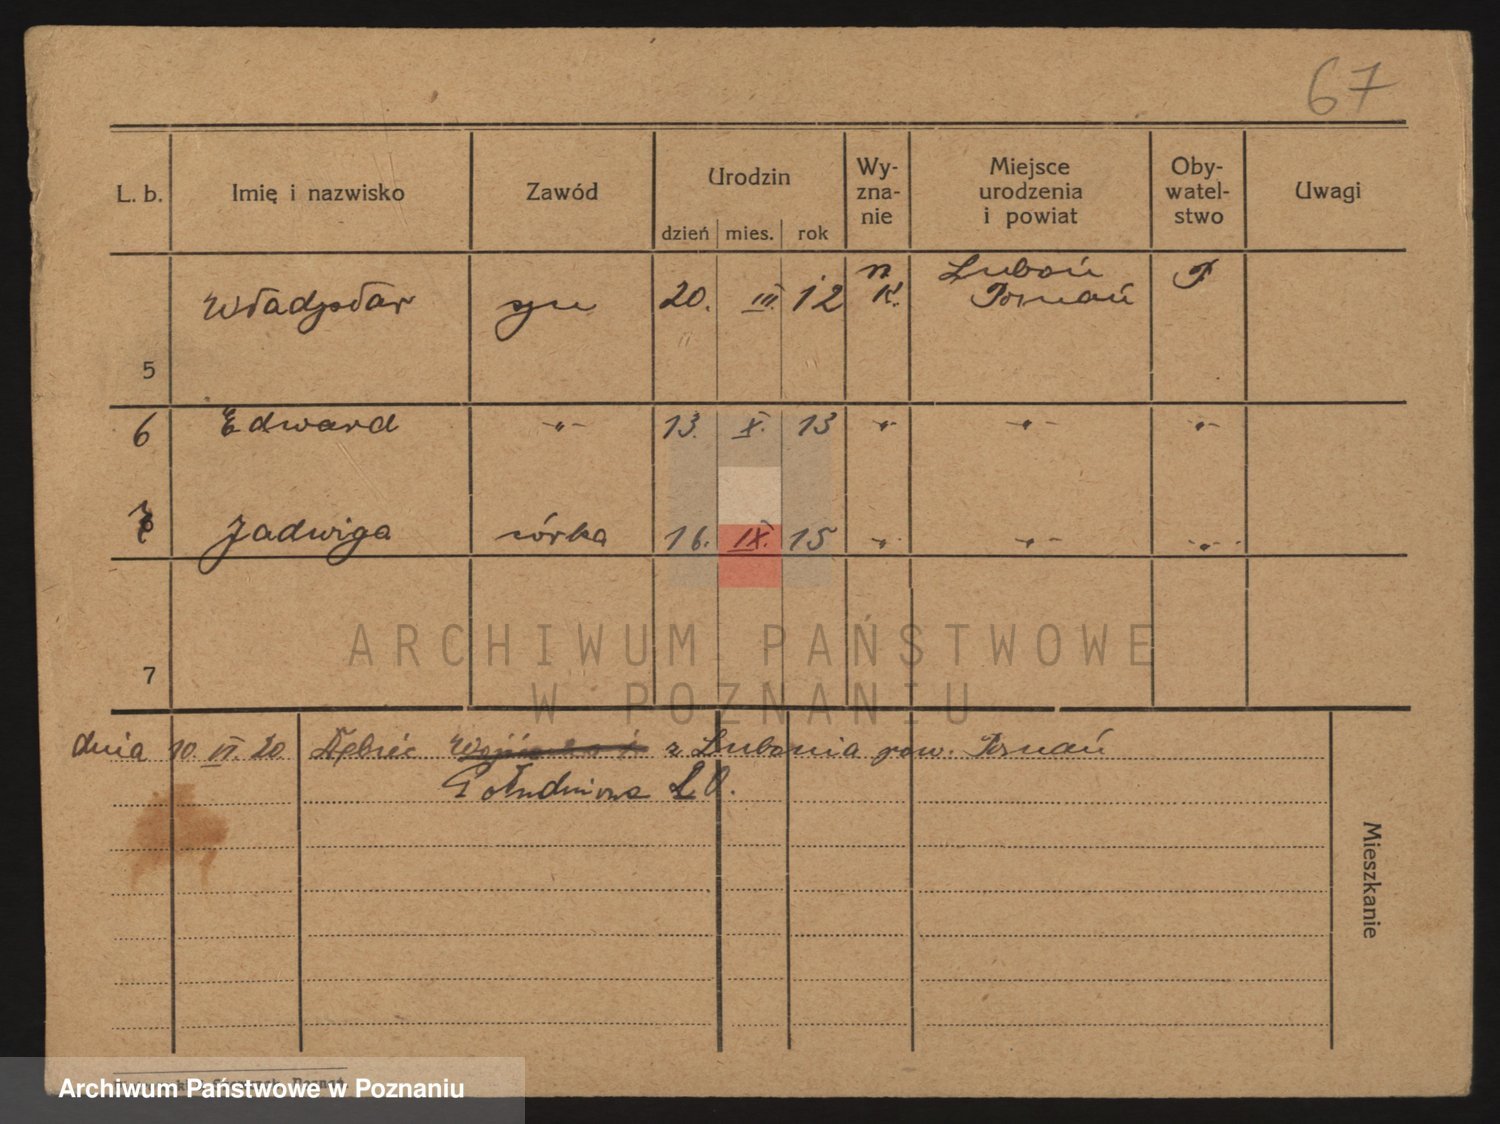 67
L. b. Imię i nazwisko Zawód Urodzin Wy- Miejsce Oby- Uwagi
zna- urodzenia watel-
nie i powiat stwo
dzień mies. rok
Władysław syn 20. III. 12 r. Luboń P
K. Poznań
5
6 Edward -"- 13. X. 13 -"- -"- -"-
7 Jadwiga córka 16. IX. 15 -"- -"- -"-
ARCHIWUM PAŃSTWOWE
7
W POZNANIU
dnia 10. VI. 20. Dębiec z Lubonia pow. Poznań
Południowa 20.
Mieszkanie
Archiwum Państwowe w Poznaniu